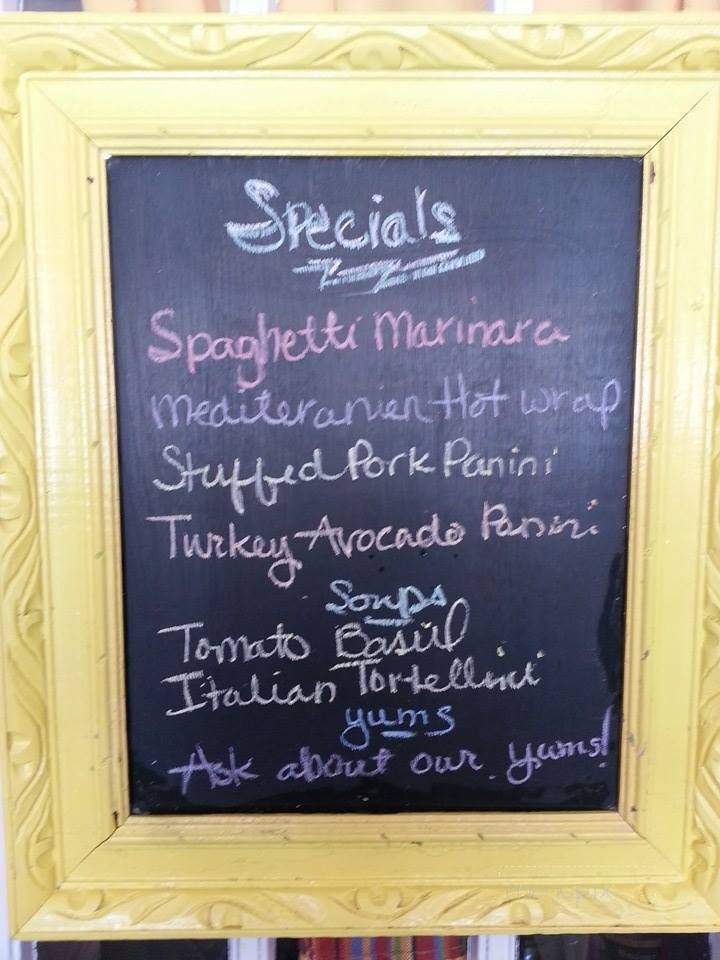 Specials
Spaghetti Marinara
Mediteranian Hot wrap
Stuffed Pork Panini
Turkey Avocado Panini
Soups
Tomato Basil
Italian Tortellini
yums
Ask about our yums!